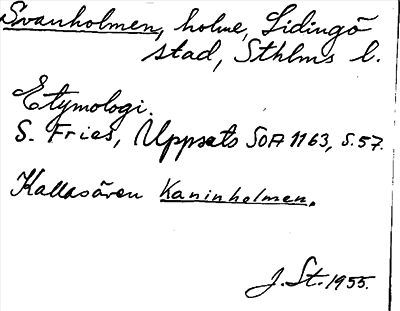 Svanholmen, holme, Lidingö
stad, Sthlms l.
Etymologi.
S. Fries, Uppsats SOA 1163, s. 57.
Kallas även Kaninholmen.
J. St. 1955.